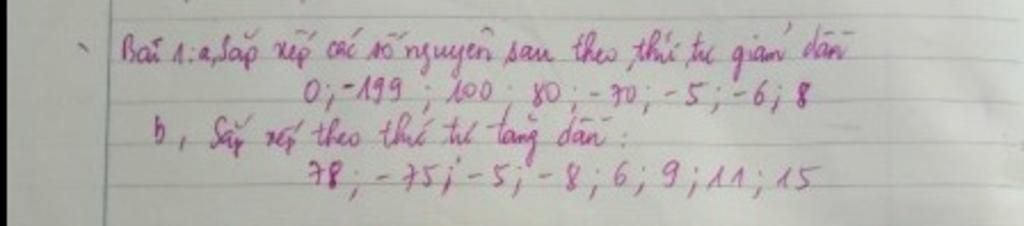 Bài 1: a, Sắp xếp các số nguyên sau theo thứ tự giảm dần
0; -199; 100; 80; -70; -5; -6; 8
b, Sắp xếp theo thứ tự tăng dần:
78; -75; -5; -8; 6; 9; 11; 15